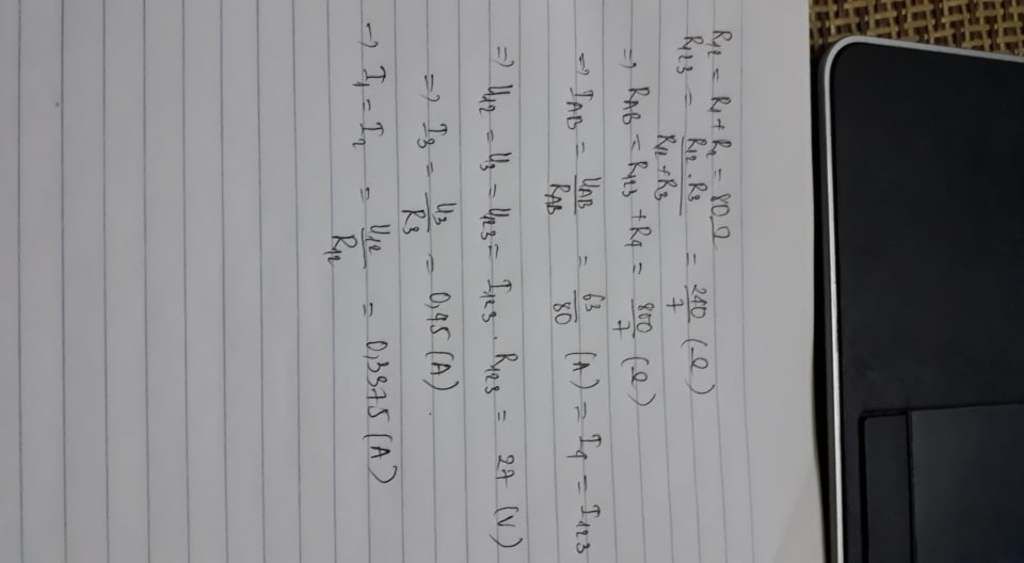 R₁₂ = R₁ + R₂ = 80Ω
R₁₂₃ = \frac{R₁₂ . R₃}{R₁₂ + R₃} = \frac{240}{7} (Ω)
=> R_AB = R₁₂₃ + R₄ = \frac{800}{7} (Ω)
=> I_AB = \frac{U_AB}{R_AB} = \frac{63}{80} (A) = I₄ = I₁₂₃
=> U₁₂ = U₃ = U₁₂₃ = I₁₂₃ . R₁₂₃ = 27 (V)
=> I₃ = \frac{U₃}{R₃} = 0,45 (A).
-> I₁ = I₂ = \frac{U₁₂}{R₁₂} = 0,3375 (A)